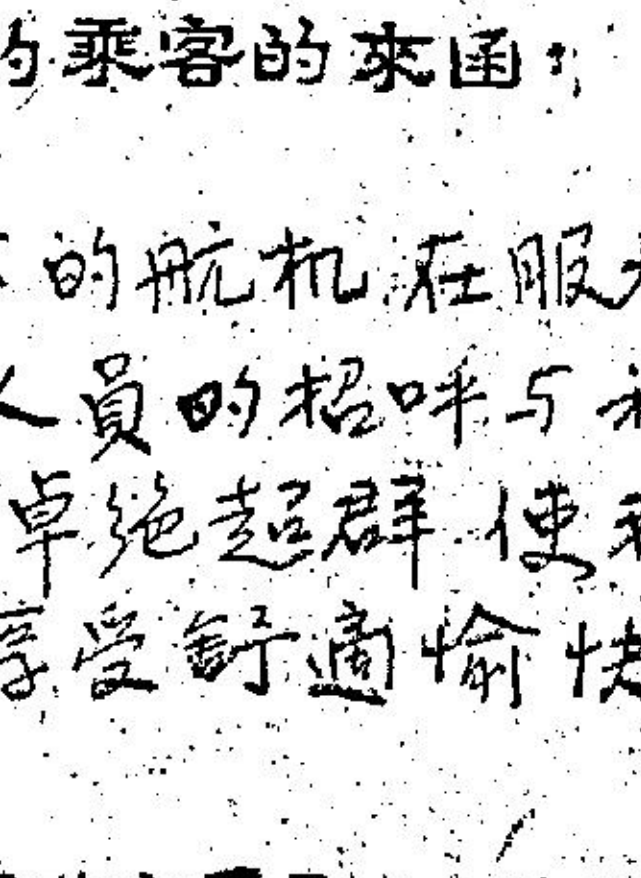 的乘客的來函：
的航机在服
人員的招呼与
卓絶超群使
享受舒適愉快